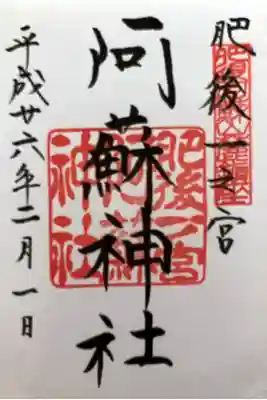 肥後一之宮
阿蘇神社
平成廿六年二月一日
肥後一宮
阿蘇神社